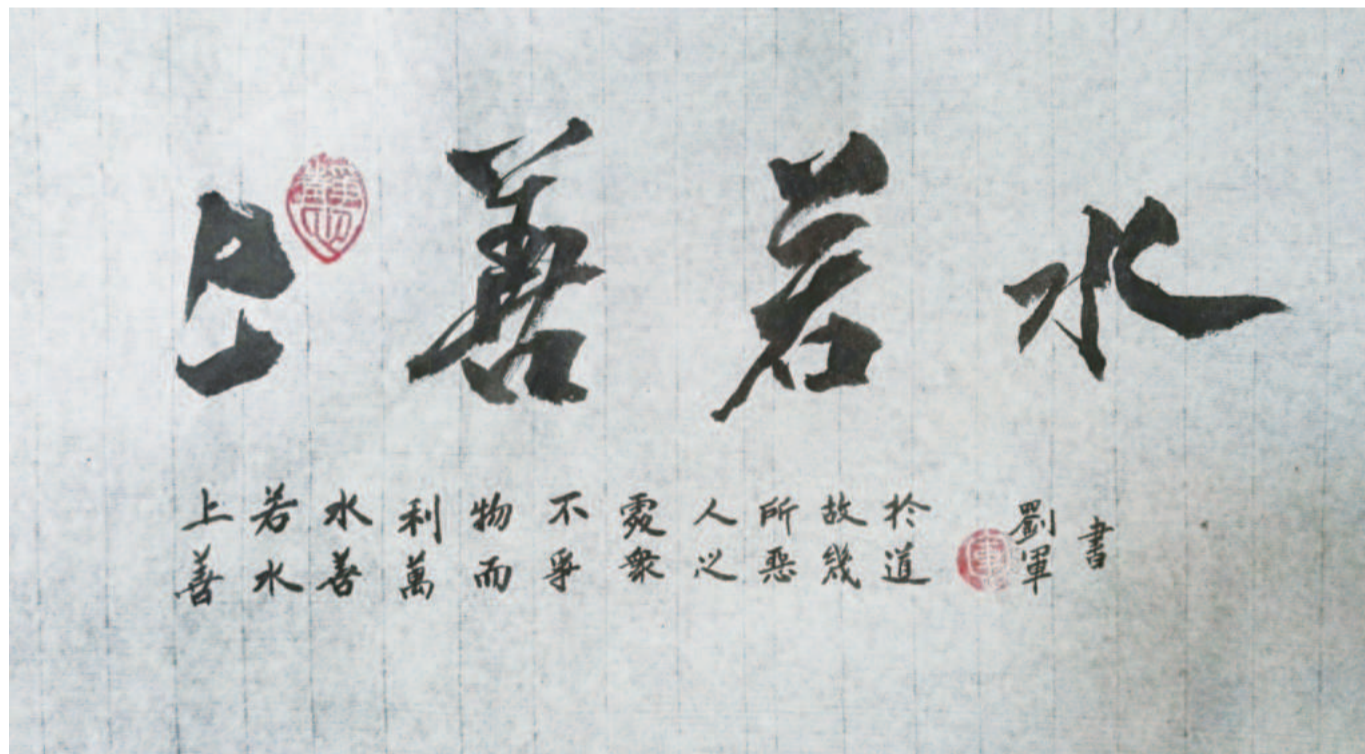 上善若水
上善
若水
水善
利萬
物而
不爭
處衆
人之
所惡
故幾
於道
劉軍
書